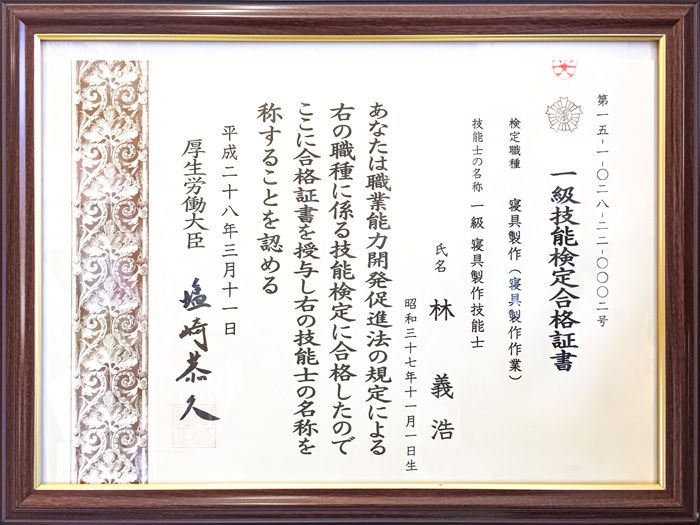 第一五-一-〇二八-二二-〇〇〇二号
一級技能検定合格証書
検定職種 寝具製作(寝具製作作業)
技能士の名称 一級 寝具製作技能士
氏名 林 義浩
昭和三十七年十一月一日生
あなたは職業能力開発促進法の規定による
右の職種に係る技能検定に合格したので
ここに合格証書を授与し右の技能士の名称を
称することを認める
平成二十八年三月十一日
厚生労働大臣 塩崎恭久